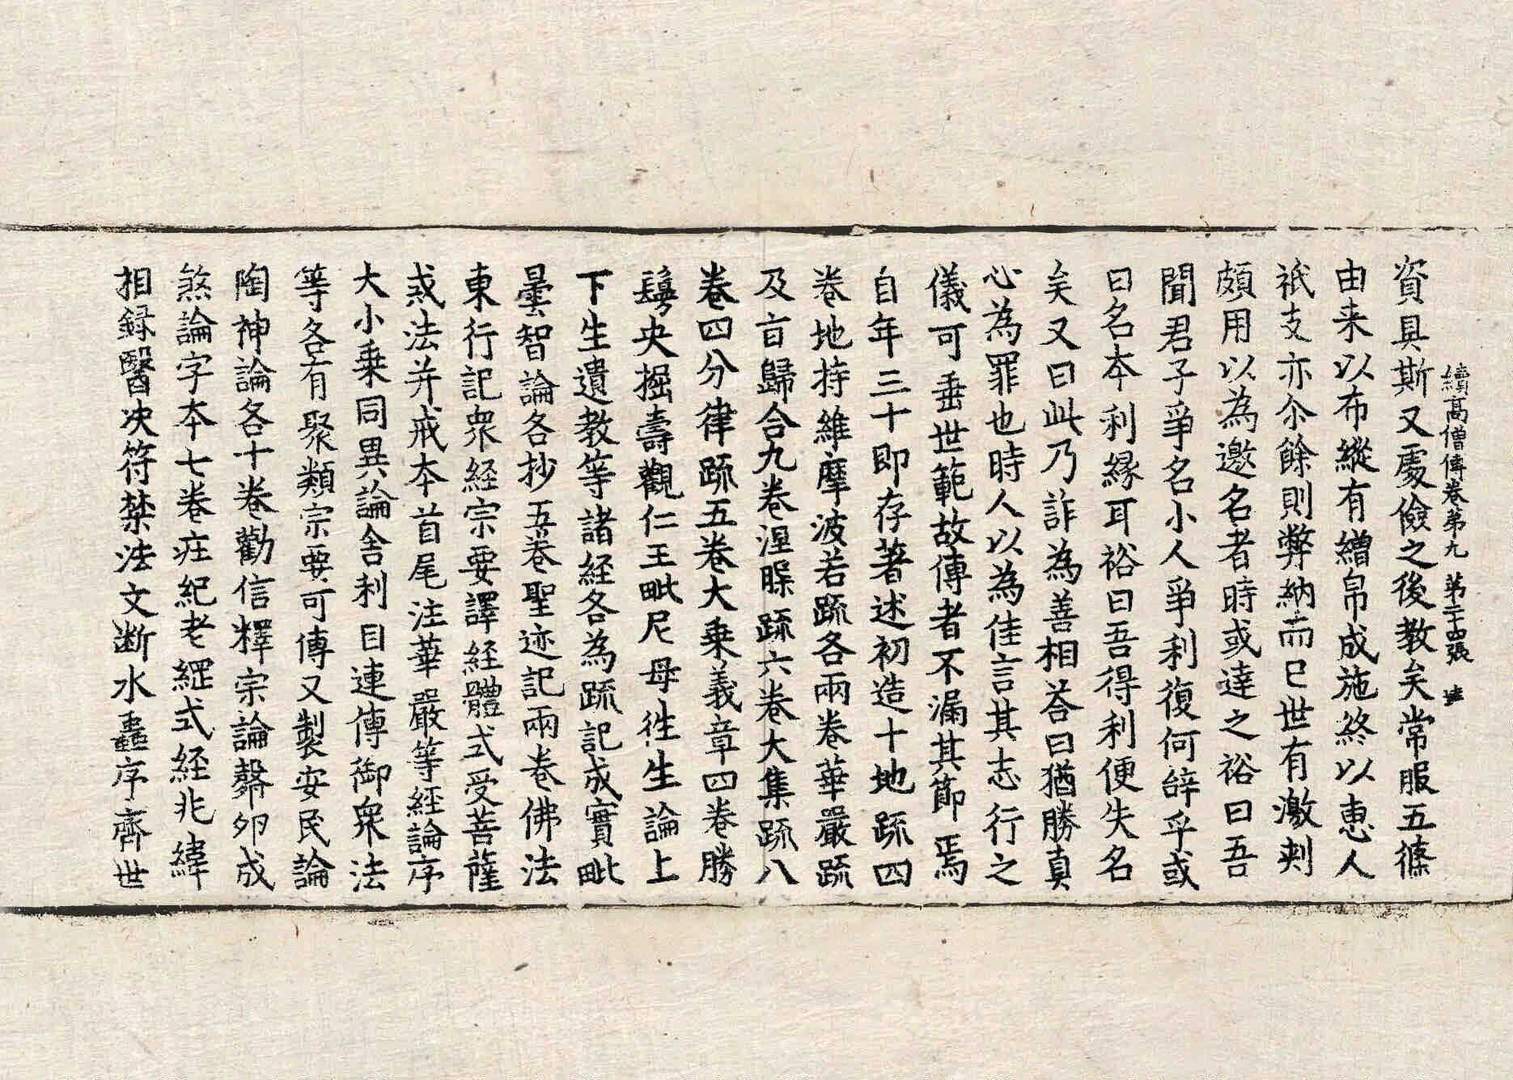 續高僧傳卷第九 第二十四張
資具斯又處儉之後教矣常服五條
由来以布縱有繒帛成施終以惠人
祇支亦尒餘則弊納而已世有激刾
頗用以為邀名者時或達之裕曰吾
聞君子爭名小人爭利復何辝乎或
曰名本利緣耳裕曰吾得利便失名
矣又曰此乃詐為善相荅曰猶勝真
心為罪也時人以為佳言其志行之
儀可垂世範故傳者不漏其節焉
自年三十即存著述初造十地䟽四
卷地持維摩波若䟽各兩卷華嚴䟽
及旨歸合九卷涅槃䟽六卷大集䟽八
卷四分律䟽五卷大乘義章四卷勝
鬘央掘壽觀仁王毗尼母徃生論上
下生遺教等諸經各為䟽記成實毗
曇智論各抄五卷聖迹記兩卷佛法
東行記衆經宗要譯經體式受菩薩
戒法并戒本首尾注華嚴等經論序
大小乘同異論舍利目連傳御衆法
等各有聚類宗要可傳又製安民論
陶神論各十卷勸信釋宗論觳卵成
煞論字本七卷疰紀老經式經兆緯
相録醫决符禁法文断水蟲序齊世